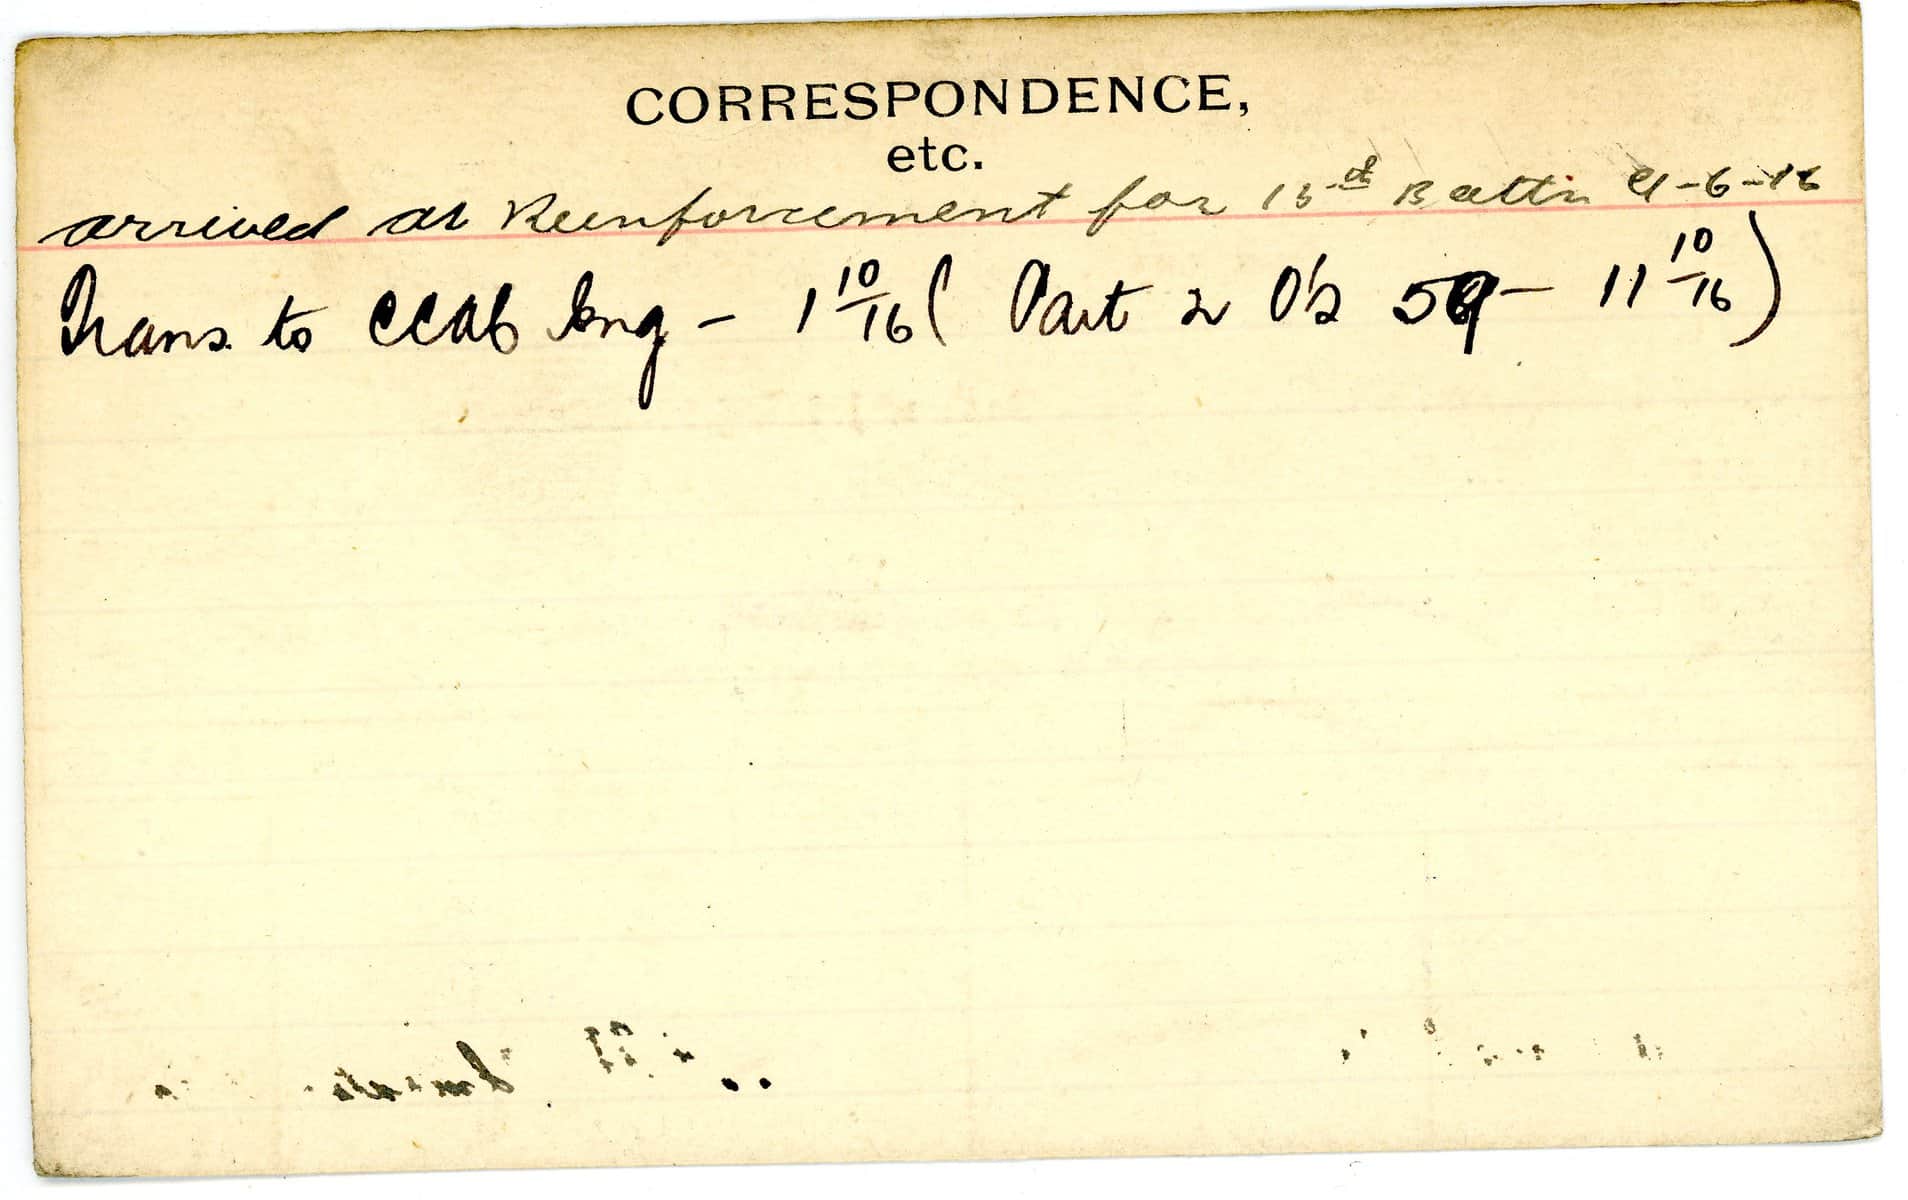 CORRESPONDENCE,
etc.
arrived as Reinforcement for 15th Battn -6-16
Trans. to CCAC Eng - 1 10/16 ( Part 2 O's 59 - 11 10/16 )